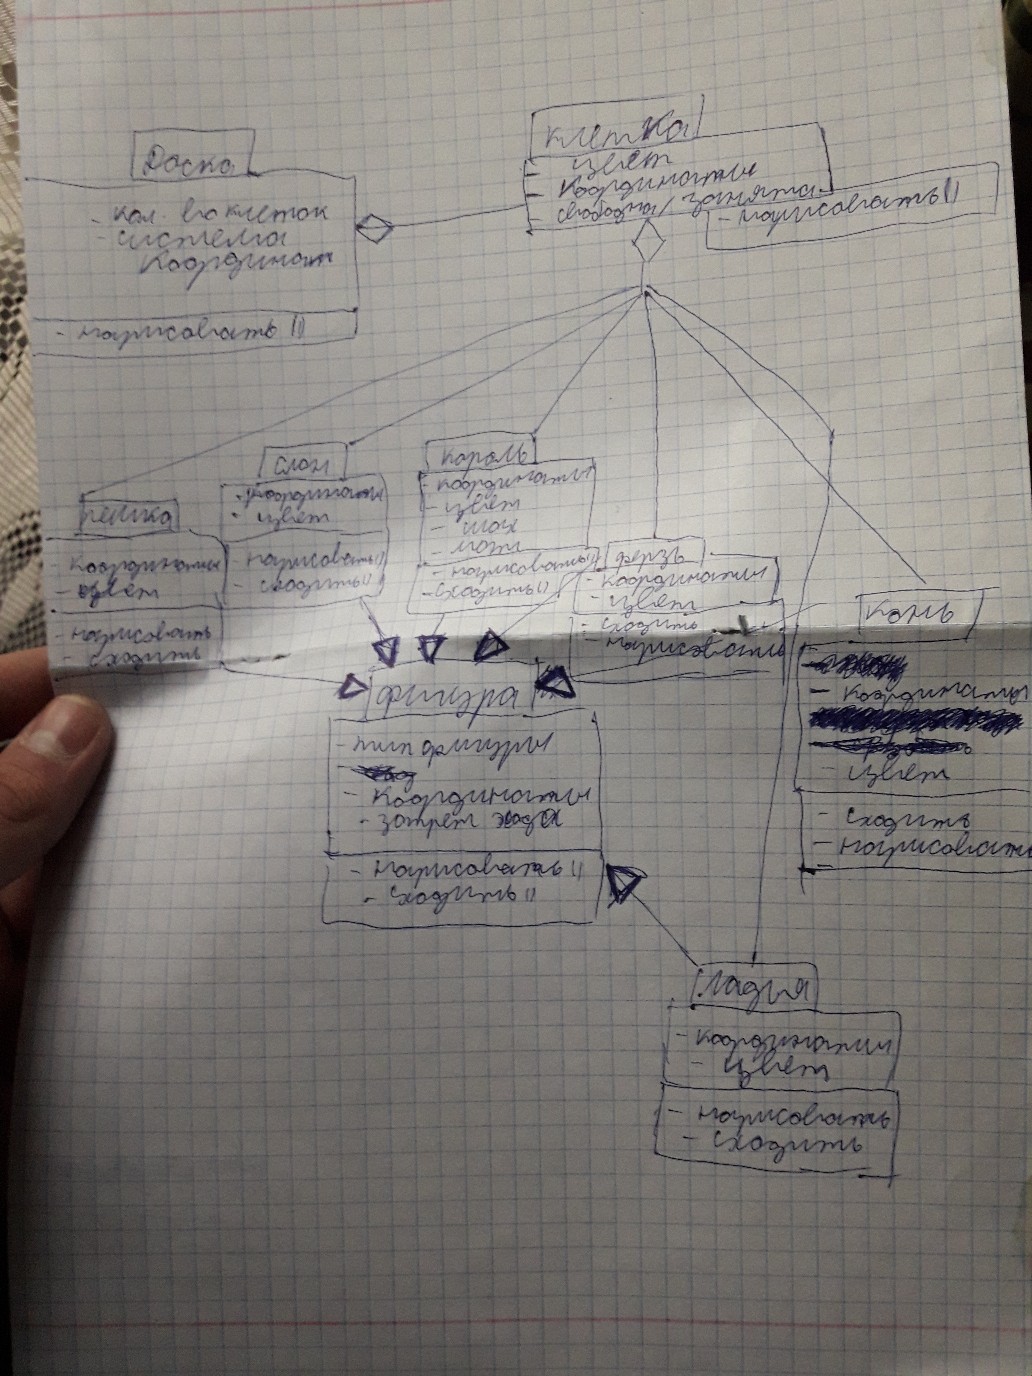 Доска
- кол-во клеток
- система
координат
- нарисовать()
клетка
- цвет
- координаты
- свободна/занята
- нарисовать()
пешка
- координаты
- цвет
- нарисовать
- сходить
слон
- координаты
- цвет
- нарисовать()
- сходить()
король
- координаты
- цвет
- шах
- мат
- нарисовать()
- сходить()
ферзь
- координаты
- цвет
- сходить
- нарисовать
конь
- координаты
- цвет
- сходить
- нарисовать
фигура
- тип фигуры
- координаты
- запрет хода
- нарисовать()
- сходить()
ладья
- координаты
- цвет
- нарисовать
- сходить